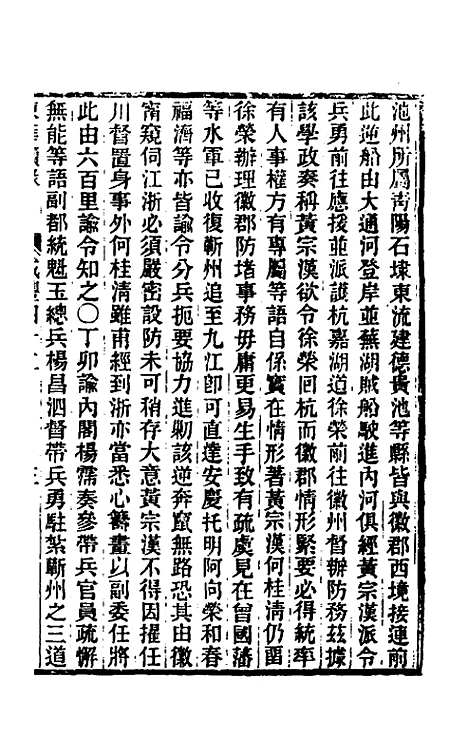 池州所屬靑陽石埭東流建德貴池等縣皆與徽郡西境接連前
此逆船由大通河登岸並蕪湖賊船駛進內河俱經黃宗漢派令
兵勇前往應援並派護杭嘉湖道徐榮前往徽州督辦防務茲據
該學政奏稱黃宗漢欲令徐榮回杭而徽郡情形緊要必得統率
有人事權方有專屬等語自係實在情形著黃宗漢何桂淸仍畱
徐榮辦理徽郡防堵事務毋庸更易生手致有疏虞見在曾國藩
等水軍已收復蘄州追至九江卽可直達安慶托明阿向榮和春
福濟等亦皆諭令分兵扼要協力進勦該逆奔竄無路恐其由徽
甯窺伺江浙必須嚴密設防未可稍存大意黃宗漢不得因擢任
川督置身事外何桂淸雖甫經到浙亦當悉心籌畫以副委任將
此由六百里諭令知之〇丁卯諭內閣楊霈奏參帶兵官員疏懈
無能等語副都統魁玉總兵楊昌泗督帶兵勇駐紮蘄州之三道